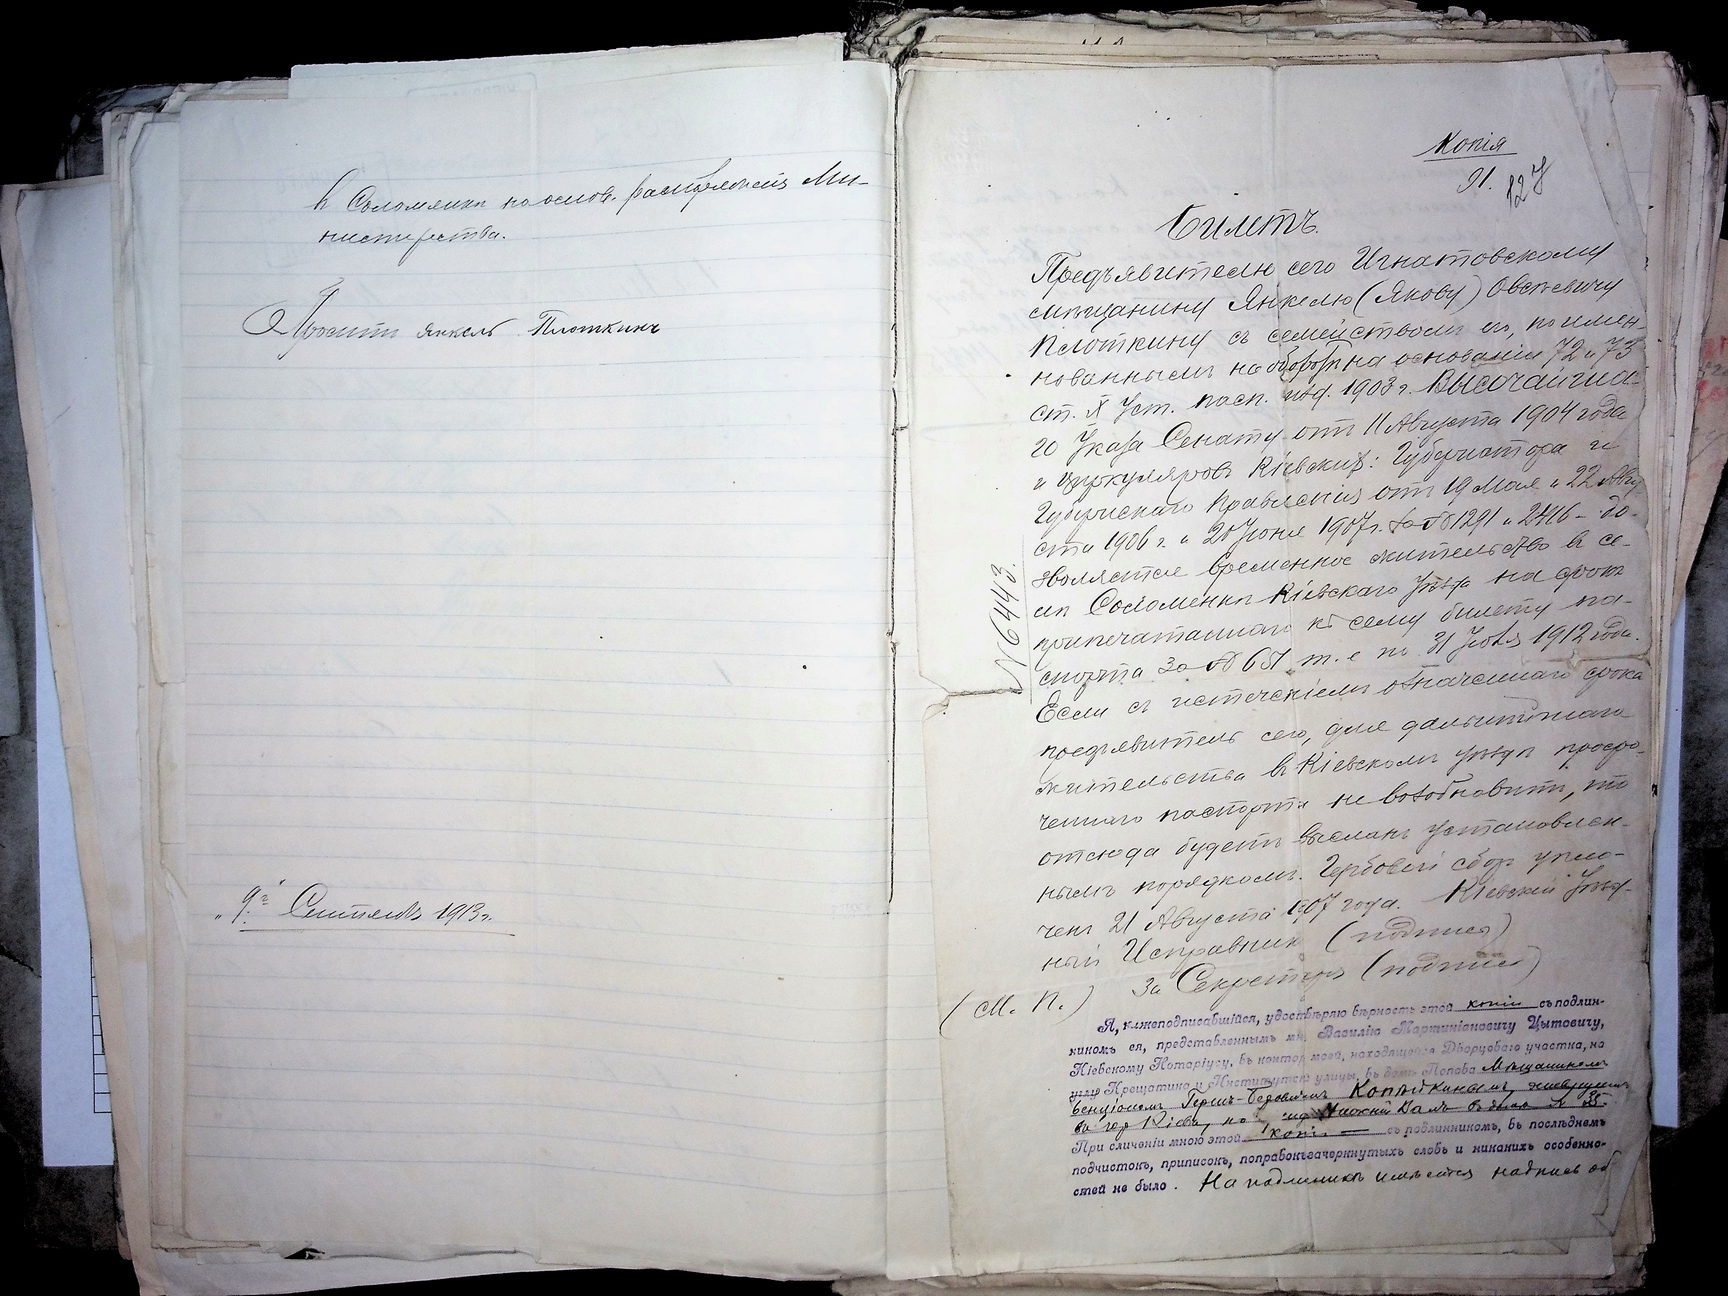 въ Соломенкѣ на основ. распоряженія Ми-
нистерства.
Проситъ Янкель Плоткинъ
„9го“ Сентября 1913 г.
Копія
Л. 127
Билетъ.
Предъявителю сего Игнатовскому
мѣщанину Янкелю (Якову) Овсѣевичу
Плоткину съ семействомъ его, поимен-
нованнымъ на оборотѣ на основаніи 72 и 73
ст. X Уст. пасп. изд. 1903 г. Высочайша-
го Указа Сенату отъ 11 Августа 1904 года
и циркуляровъ Кіевских: Губернатора и
Губернскаго Правленія отъ 19 Мая и 22 Авгу-
ста 1906 г. и 20 Іюня 1907 г. за № 1291 и 2416 - до-
зволяется временное жительство въ се-
лѣ Соломенкѣ Кіевскаго уѣзда на срокъ
припечатаннаго къ сему билету па-
спорта за № 651 т. е по 31 Іюля 1912 года.
Если съ истеченіемъ означеннаго срока
предъявитель сего, для дальнѣйшаго
жительства въ Кіевскомъ уѣздѣ просро-
ченнаго паспорта не возобновитъ, то
отсюда будетъ высланъ установлен-
нымъ порядкомъ. Гербовый сборъ упла-
ченъ 21 Августа 1907 года. Кіевскій Уѣзд-
ный Исправникъ (подпись)
За Секретаря (подпись)
(М. П.)
№ 6443.
Я, нижеподписавшійся, удостовѣряю вѣрность этой копіи съ подлин-
никомъ ея, представленнымъ мнѣ Василію Мартиніановичу Цытовичу,
Кіевскому Нотаріусу, въ конторѣ моей, находящейся Дворцоваго участка, на
углу Крещатика и Институтской улицы, въ домѣ Попова Мѣщаниномъ
Бенціономъ Гершъ-Беровымъ Копѣйкинымъ, живущимъ
въ гор. Кіевѣ, по Нижній Валъ въ домѣ № 35.
При сличеніи мною этой копіи съ подлинникомъ, въ послѣднемъ
подчистокъ, приписокъ, поправокъ зачеркнутыхъ словъ и никакихъ особенно-
стей не было. На подлинникѣ имѣется надпись об